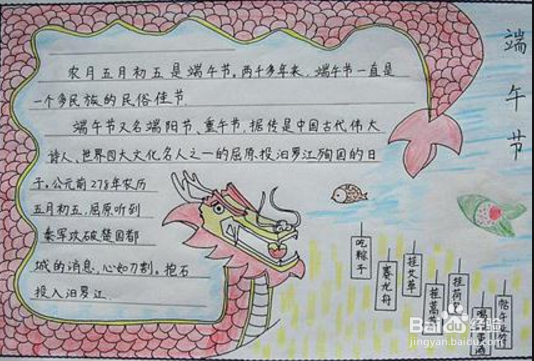 端午节
农月五月初五是端午节。两千多年来,端午节一直是
一个多民族的民俗佳节.
端午节又名端阳节、重午节,据传是中国古代伟大
诗人、世界四大文化名人之一的屈原,投汨罗江殉国的日
子。公元前278年农历
五月初五,屈原听到
秦军攻破楚国都
城的消息,心如刀割。抱石
投入汨罗江.
吃粽子
赛龙舟
挂艾草
挂菖
挂荷
Baidu经验
jingyan.baidu.com